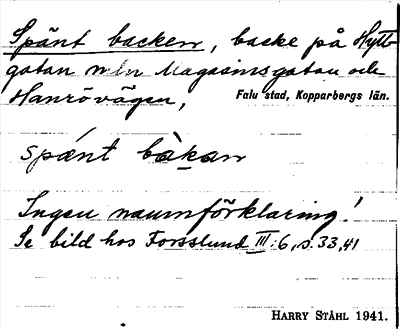 Spänt backen, backe på Hytt-
gatan mln Magasinsgatan och
Hanrövägen,
Falu stad, Kopparbergs län.
spä́nt bàkan
Ingen namnförklaring!
Se bild hos Forsslund III:6, s. 33, 41
HARRY STÅHL 1941.